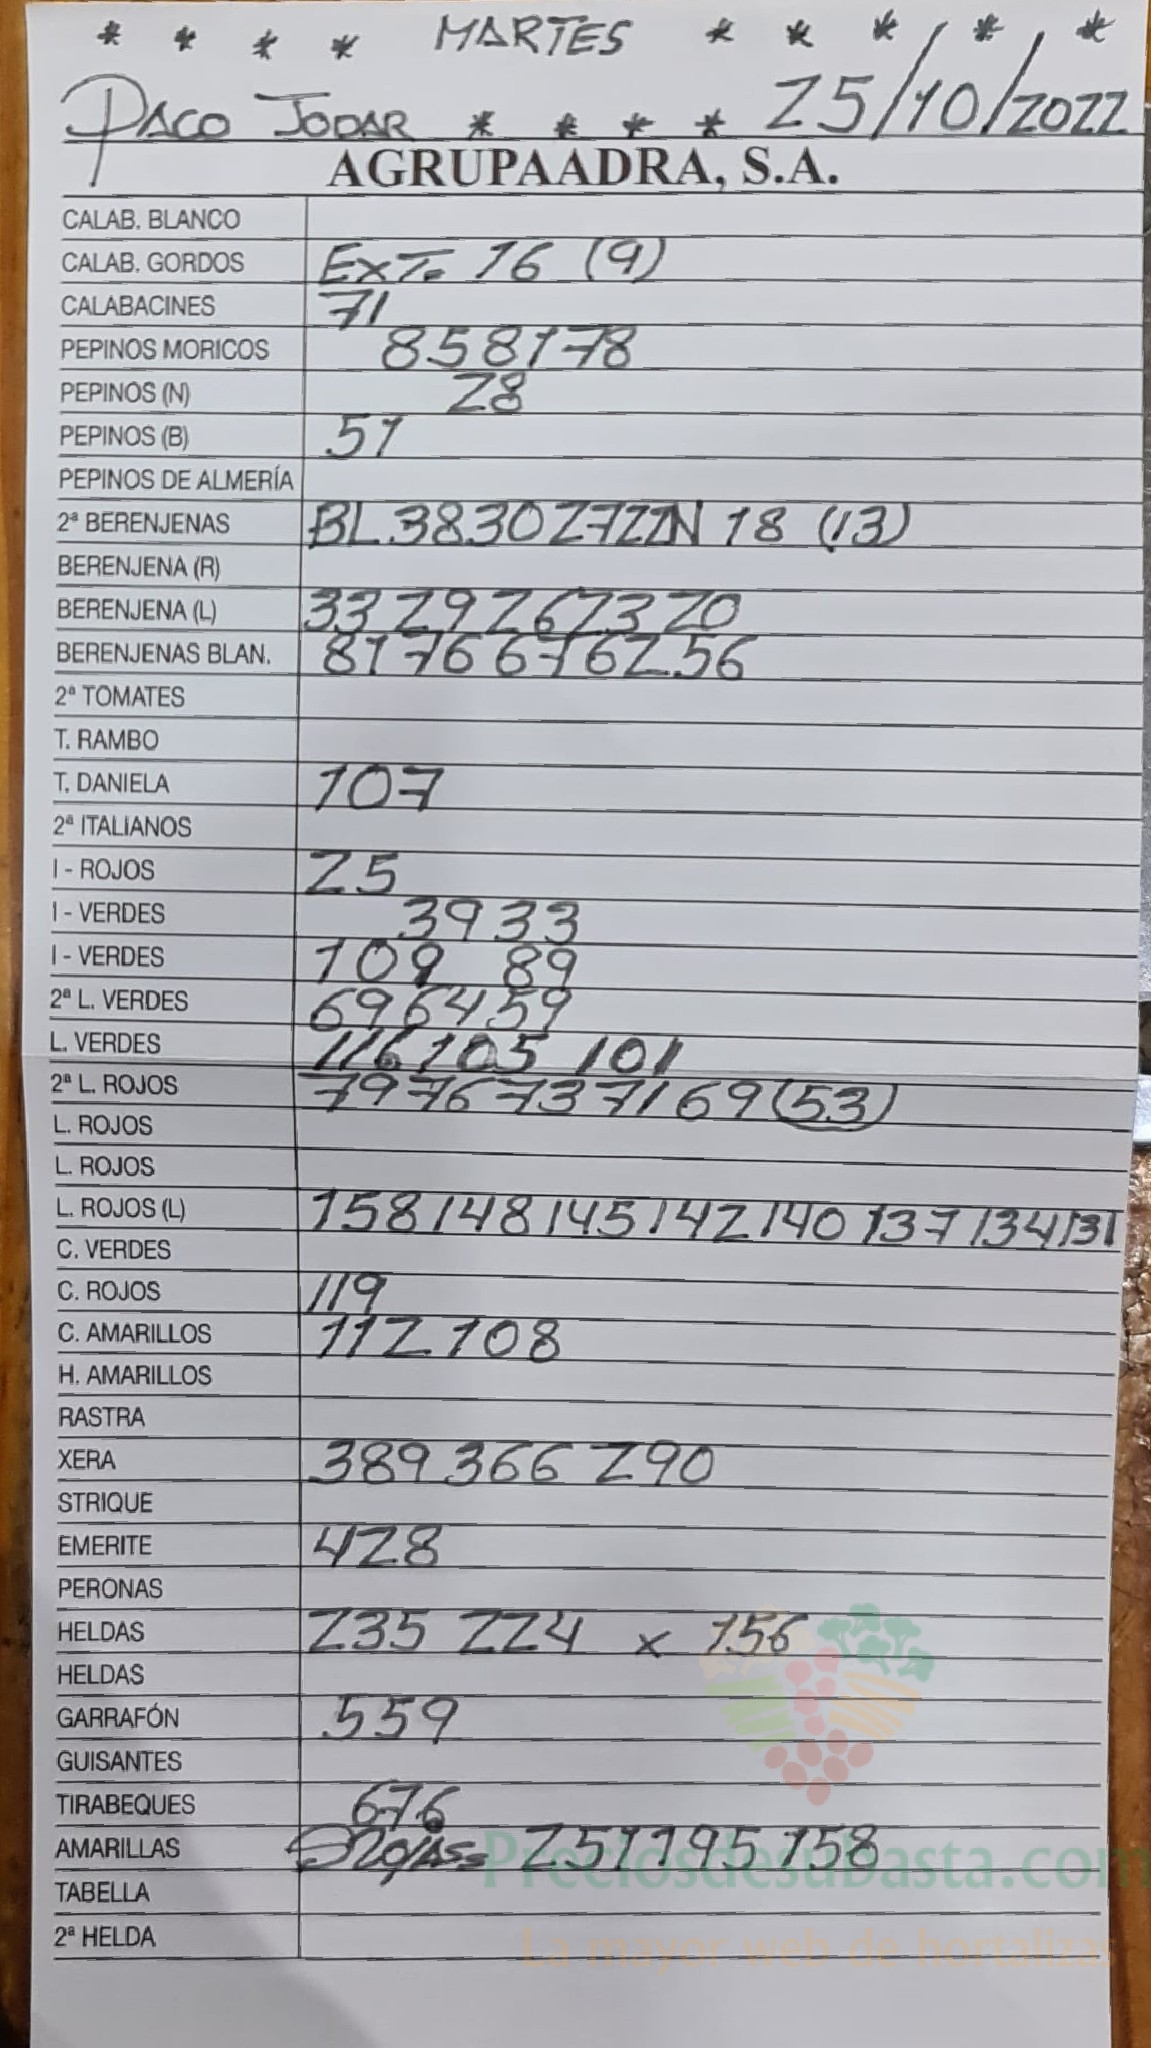 * * * * MARTES * * * * *
PACO JODAR * * * * 25/10/2022
AGRUPAADRA, S.A.
CALAB. BLANCO
CALAB. GORDOS EXT. 16 (9)
CALABACINES 71
PEPINOS MORICOS 85 81 78
PEPINOS (N) 28
PEPINOS (B) 51
PEPINOS DE ALMERÍA
2ª BERENJENAS BL. 38 30 27 22 N 18 (13)
BERENJENA (R)
BERENJENA (L) 33 29 26 23 20
BERENJENAS BLAN. 81 76 67 62 56
2ª TOMATES
T. RAMBO
T. DANIELA 107
2ª ITALIANOS
I - ROJOS 25
I - VERDES 39 33
I - VERDES 109 89
2ª L. VERDES 69 64 59
L. VERDES 116 105 101
2ª L. ROJOS 79 76 73 71 69 (53)
L. ROJOS
L. ROJOS
L. ROJOS (L) 158 148 145 142 140 137 134 131
C. VERDES
C. ROJOS 119
C. AMARILLOS 112 108
H. AMARILLOS
RASTRA
XERA 389 366 290
STRIQUE
EMERITE 428
PERONAS
HELDAS 235 224 x 156
HELDAS
GARRAFÓN 559
GUISANTES
TIRABEQUES 676
AMARILLAS 251 195 158
Preciosdesubasta.com
TABELLA
2ª HELDA
La mayor web de hortalizas